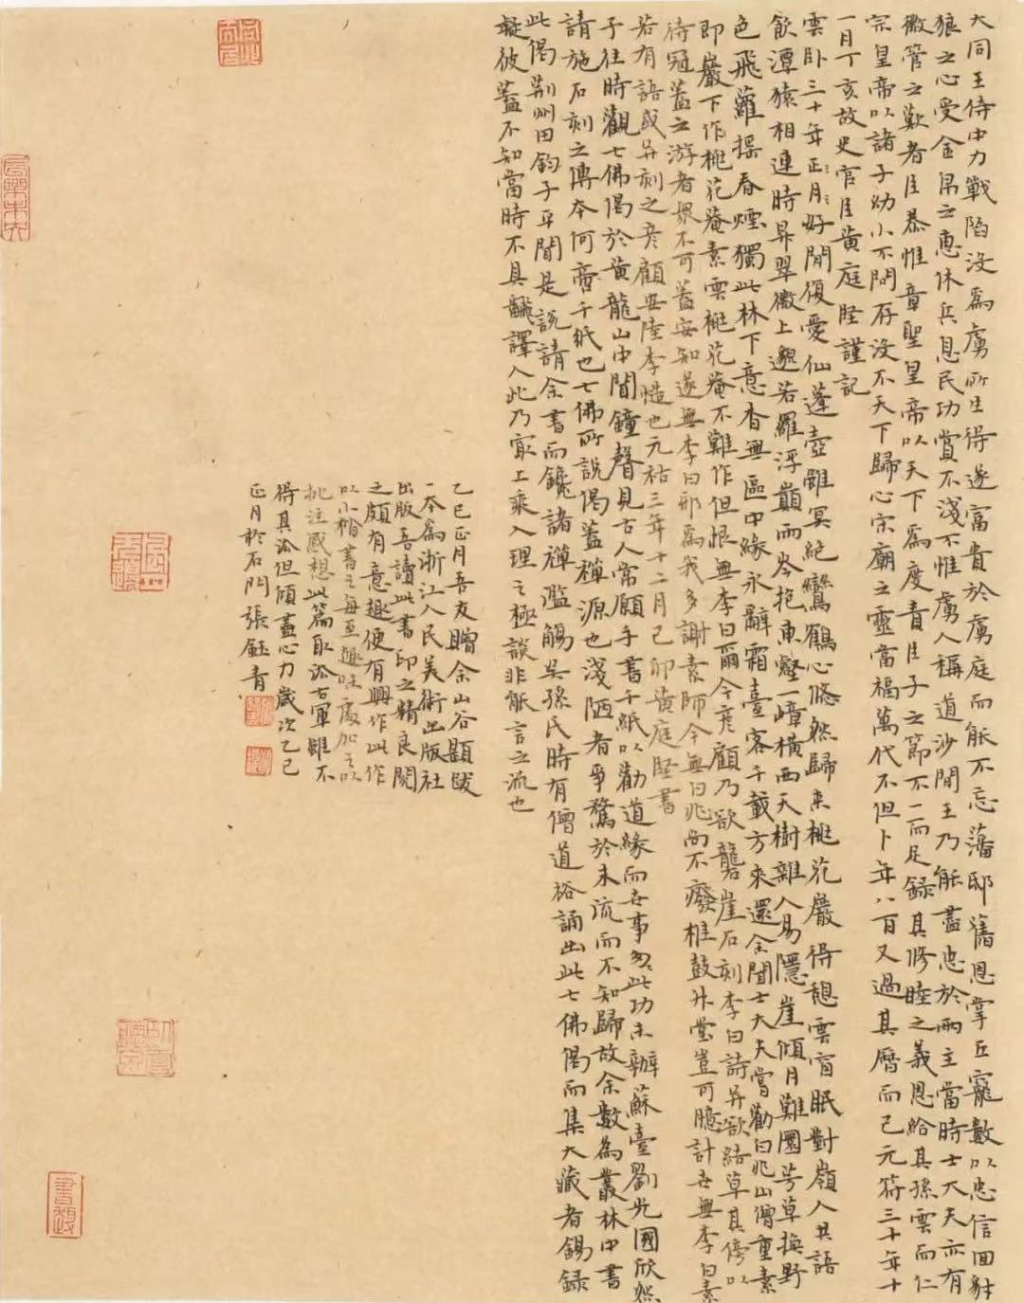 大同王侍中力戰陷沒為虜所生得遂富貴於虜庭而能不忘藩邸舊恩掌丘寵數以忠信回豺
狼之心受金帛之惠休兵息民功賞不淺不惟虜人稱道沙間王乃能盡忠於兩主當時士大夫亦有
微管之歎者臣恭惟章聖皇帝以天下為度青臣子之節不一而足錄其修睦之義恩給其孫雲而仁
宗皇帝以諸子幼小不問存沒不天下歸心宗廟之靈當福萬代不但卜年八百又過其曆而已元符三十年十
一月丁亥故史官臣黃庭堅謹記
雲卧三十年正月好閒復愛仙蓬壺雖冥絕鸞鶴心悠然歸来桃花巖得憩雲窗眠對嶺人共語
飲潭猿相連時昇翠微上邈若羅浮巔而岑抱東壑一嶂橫西天樹雜人易隱崖傾月難圓芳草換野
色飛蘿搖春煙獨此林下意杳無區中緣永辭霜臺客千載方來還余聞士大夫嘗勸白兆山僧重素
即巖下作桃花菴素雲桃花菴不難作但恨無李白爾今彥顧乃欲礱崖石刻李白詩并欲結草其傍以
待冠蓋之游者果不可蓋安知遂無李白邪為我多謝素師今無白兆而不廢椎鼓升堂豈可臆計吾無李白素
若有語或并刻之彥顧安陸李愭也元祐三年十二月己卯黃庭堅書
予往時觀七佛偈於黃龍山中聞鐘聲見古人常願手書千紙以勸道緣而世事匆此功未辦蘇臺劉光國欣然
請施石刻之傳本何啻千紙也七佛所說偈蓋禪源也淺陋者爭鶩於末流而不知歸故余數為叢林中書
此偈荊州田鈞子平聞是說請余書而鑱諸禪濫觴吳孫氏時有僧道裕誦出此七佛偈而集大藏者錫錄
凝彼蓋不知當時不具翻譯人此乃最上乘入理之極談非能言之流也
乙巳正月吾友贈余山谷題跋
一本為浙江人民美術出版社
出版吾讀此書印之精良閱
之頗有意趣便有興作此作
以小楷書之每至趣味處加之以
批注感想此篇取法右軍雖不
得其法但傾盡心力歲次乙巳
正月於石門張鈺青